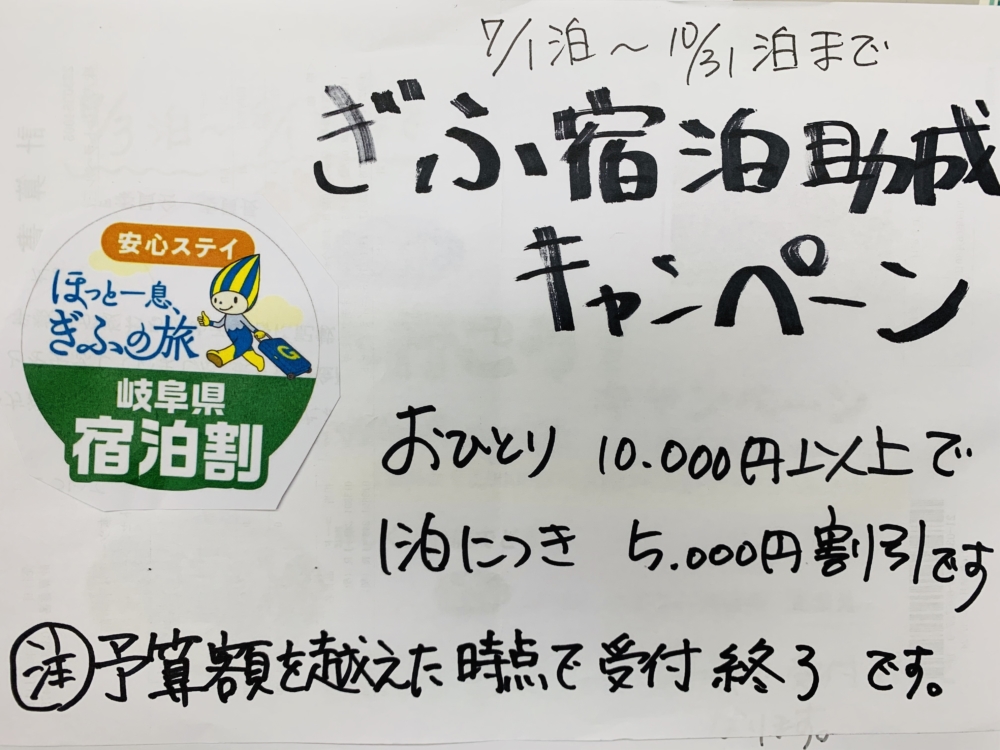 7/1泊〜10/31泊まで
ぎふ宿泊助成
キャンペーン
安心ステイ
ほっと一息、
ぎふの旅
G
岐阜県
宿泊割
おひとり 10.000円以上で
1泊につき 5.000円割引です
注 予算額を越えた時点で受付終了 です。